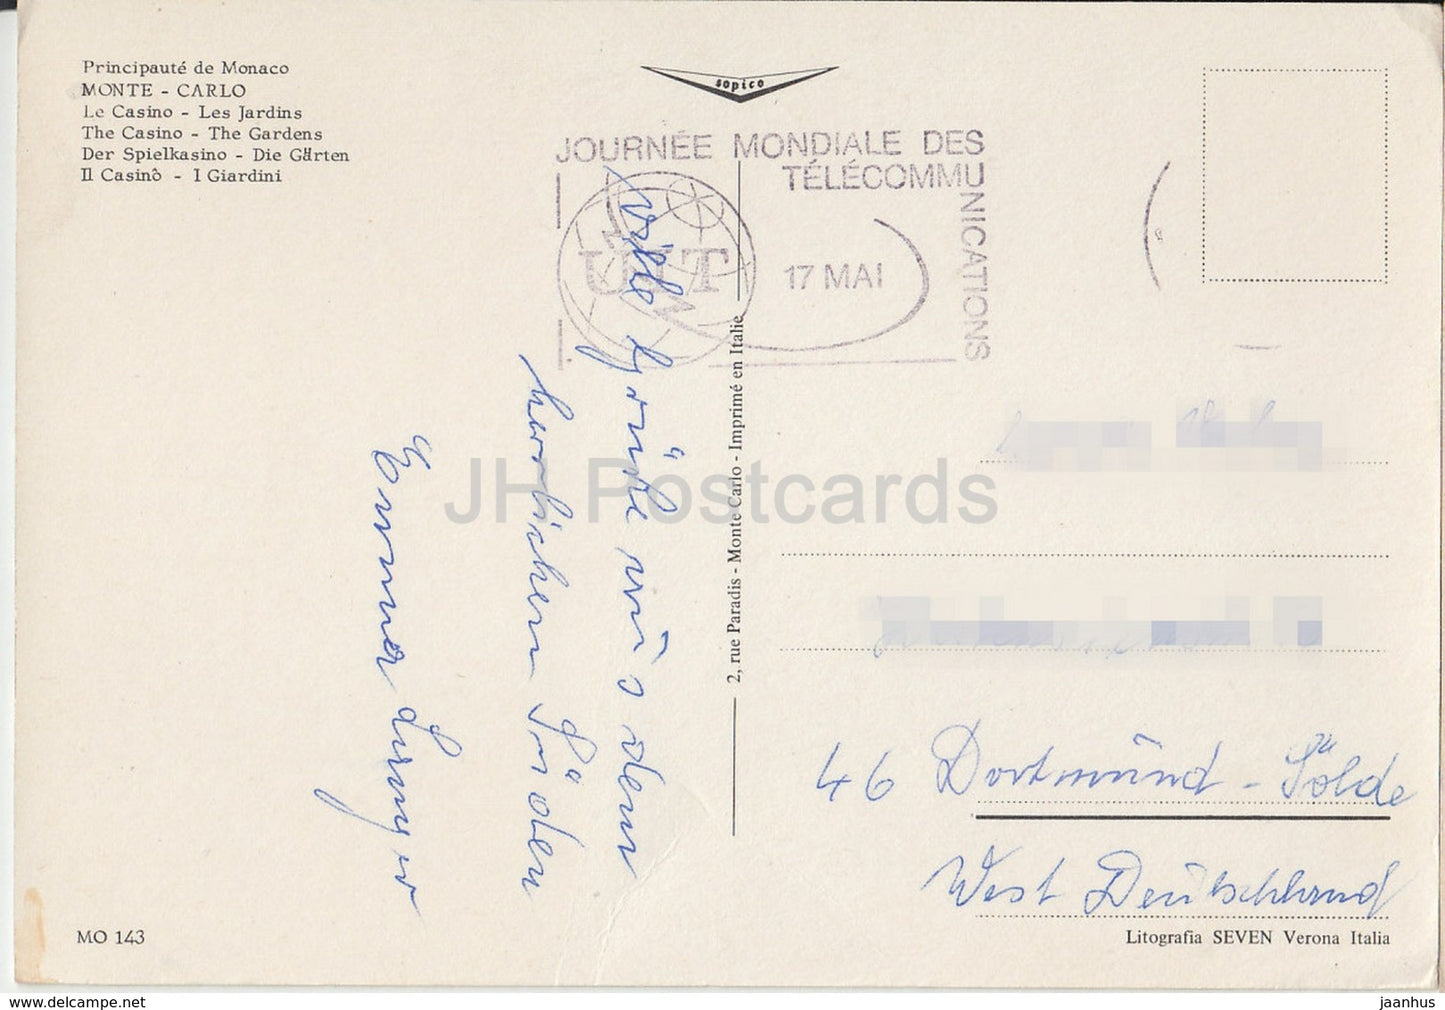 Principauté de Monaco
MONTE - CARLO
Le Casino - Les Jardins
The Casino - The Gardens
Der Spielkasino - Die Gärten
Il Casinò - I Giardini
sopico
JOURNÉE MONDIALE DES
TÉLÉCOMMUNICATIONS
UIT
17 MAI
Viele Grüße aus dem
herrlichen Süden
Emma
2, rue Paradis - Monte Carlo - Imprimé en Italie
JH Postcards
46 Dortmund - Sölde
West Deutschland
MO 143
Litografia SEVEN Verona Italia
www.delcampe.net
jaanhus